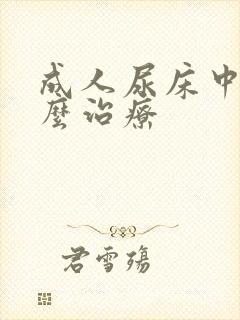 成人尿床中
麼治療
君雪殤